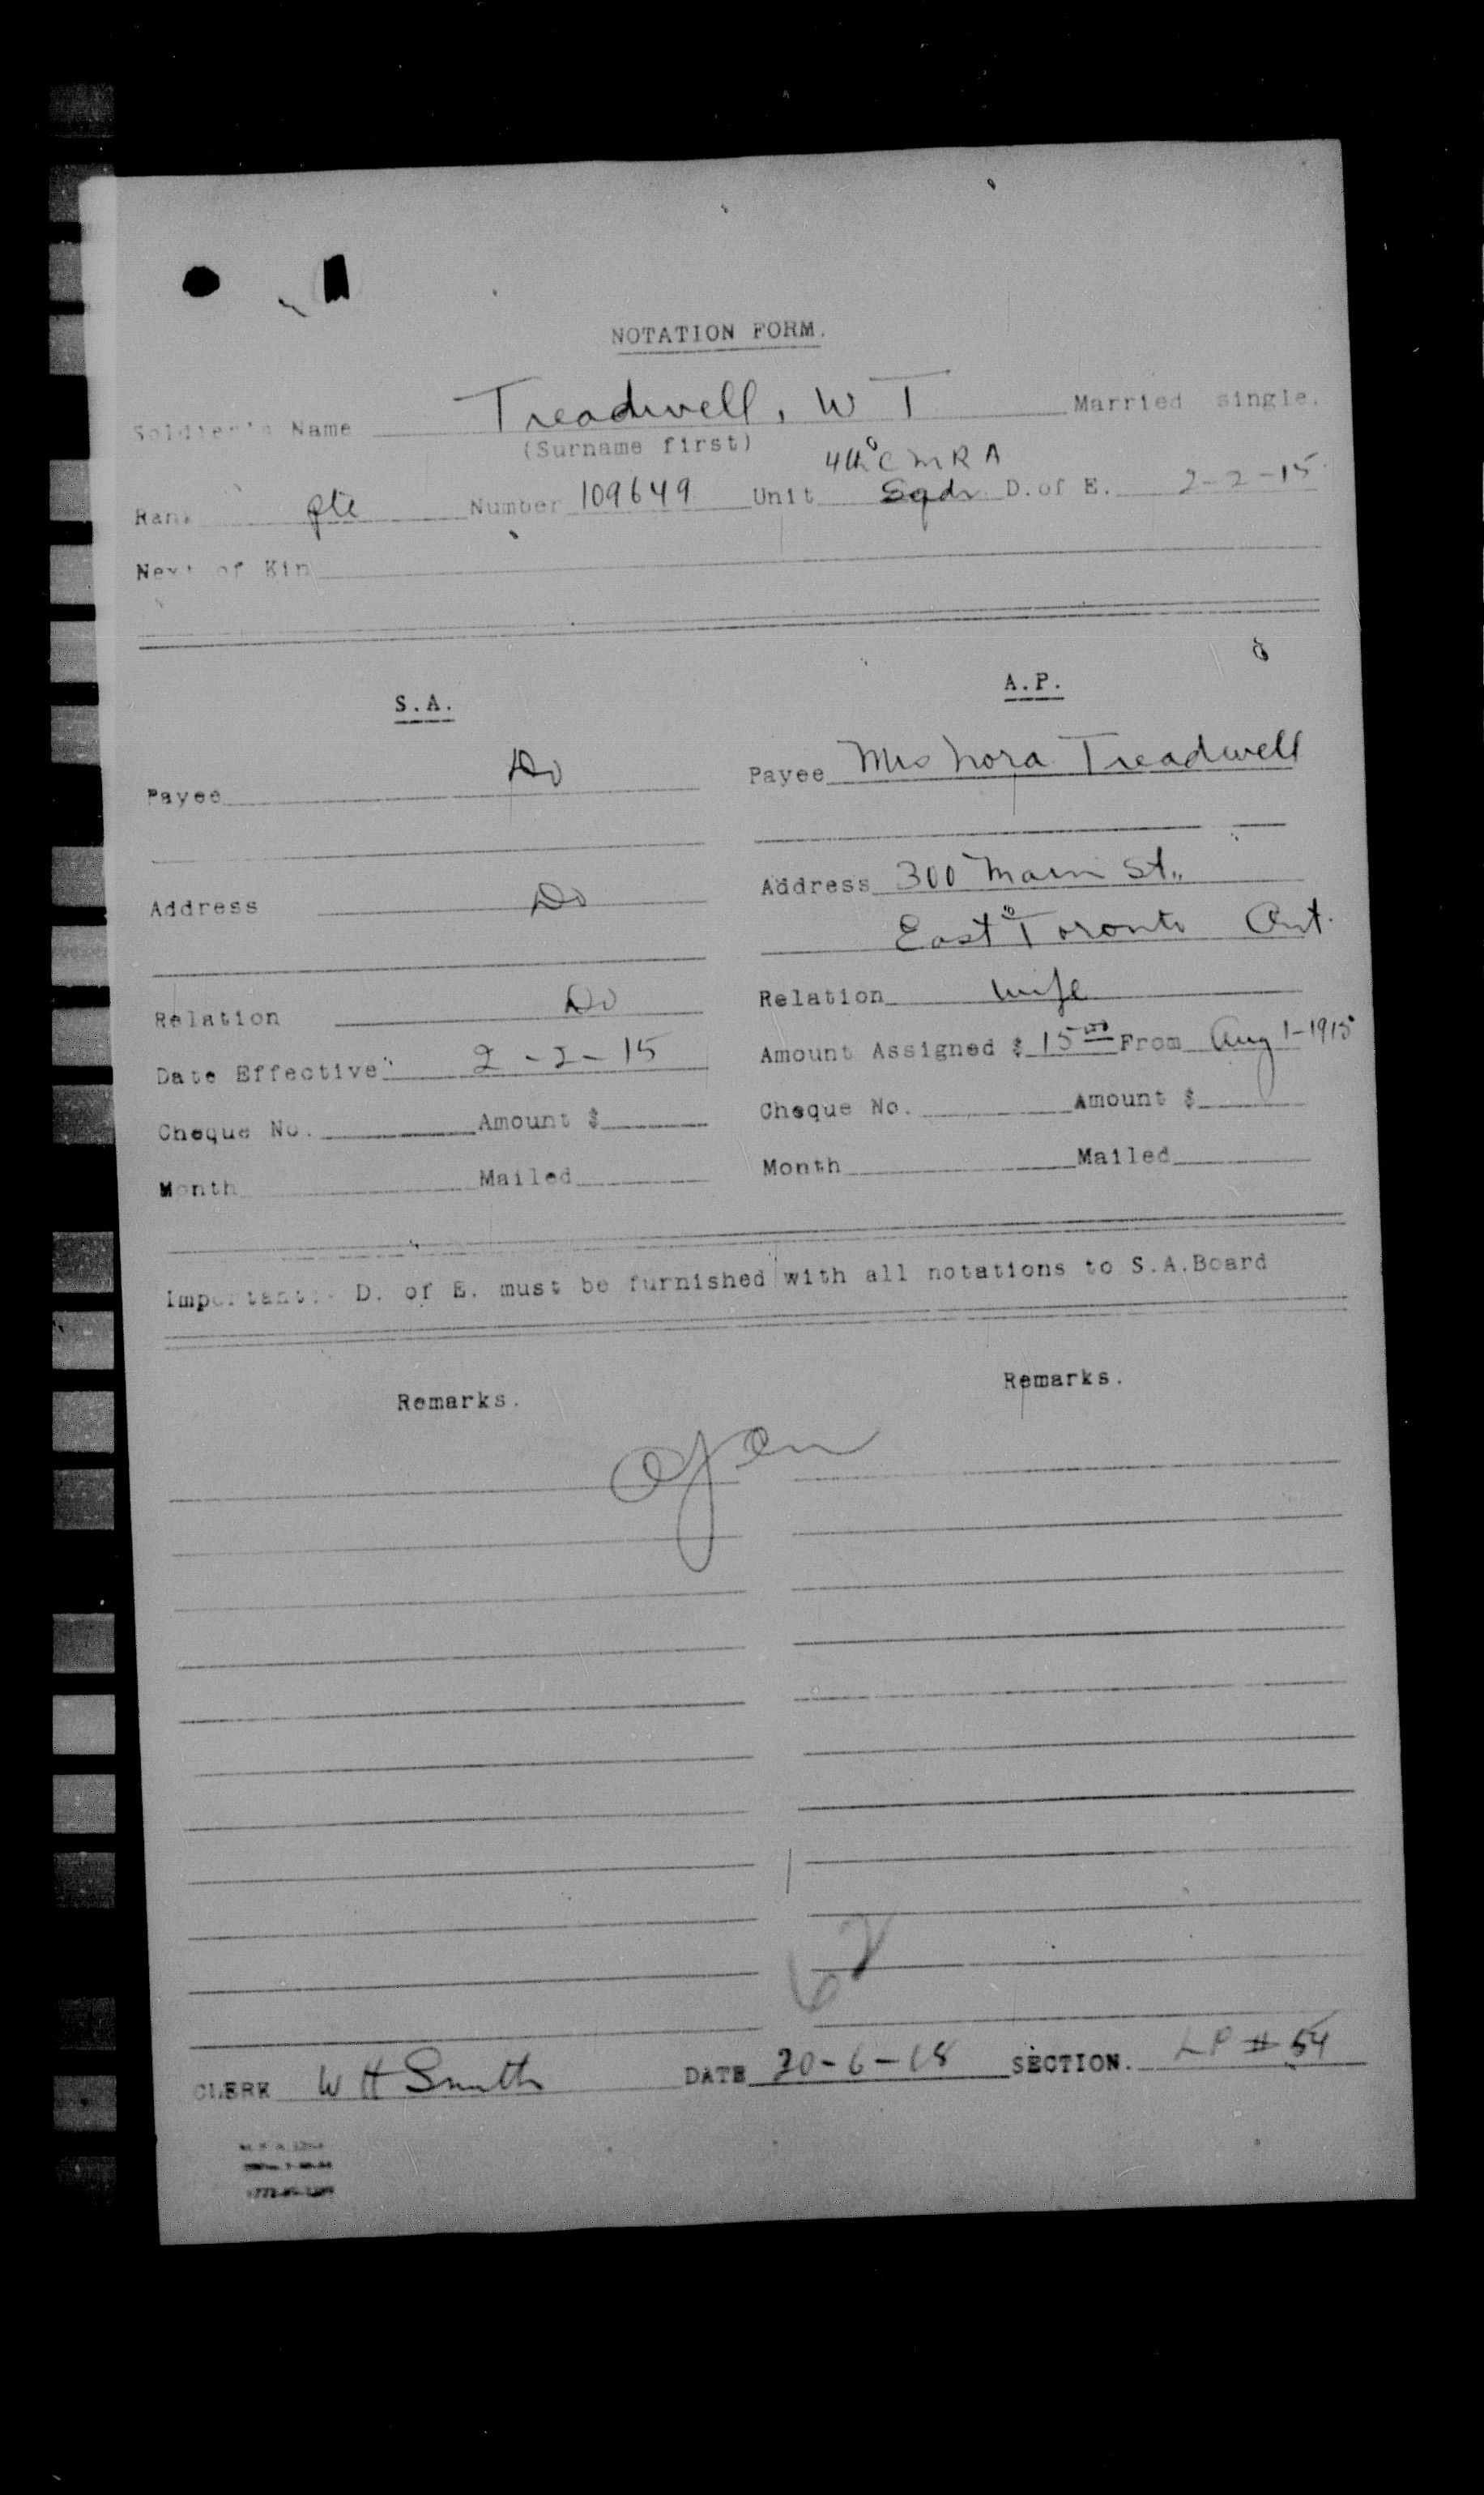 NOTATION FORM.
Soldier's Name Treadwell, W T Married single.
(Surname first)
4th C M R A
Rank Pte Number 109649 Unit Sqdr D. of E. 2-2-15
Next of Kin
S.A.
A.P.
Payee Do
Payee Mrs Nora Treadwell
Address Do
Address 300 Main St.,
East Toronto Ont.
Relation Do
Relation wife
Date Effective 2-2-15
Amount Assigned $ 15 00 From Aug 1-1915
Cheque No. Amount $
Cheque No. Amount $
Month Mailed
Month Mailed
Important:- D. of E. must be furnished with all notations to S.A.Board
Remarks.
Remarks.
Open
62
CLERK W H Smith DATE 20-6-18 SECTION. LP # 54